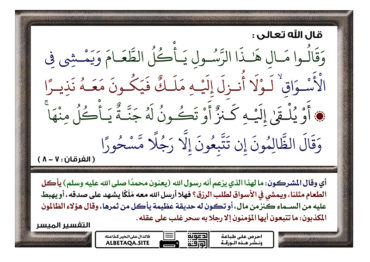 قال الله تعالى :
وَقَالُوا مَالِ هَـٰذَا الرَّسُولِ يَأْكُلُ الطَّعَامَ وَيَمْشِي فِي
الْأَسْوَاقِ ۙ لَوْلَا أُنزِلَ إِلَيْهِ مَلَكٌ فَيَكُونَ مَعَهُ نَذِيرًا
۞ أَوْ يُلْقَىٰ إِلَيْهِ كَنزٌ أَوْ تَكُونُ لَهُ جَنَّةٌ يَأْكُلُ مِنْهَا ۚ
وَقَالَ الظَّالِمُونَ إِن تَتَّبِعُونَ إِلَّا رَجُلًا مَّسْحُورًا
( الفرقان : ٧ – ٨ )
أي وقال المشركون: ما لهذا الذي يزعم أنه رسول الله (يعنون محمدًا صلى الله عليه وسلم) يأكل
الطعام مثلنا، ويمشي في الأسواق لطلب الرزق؟ فهلا أرسل الله معه مَلَكًا يشهد على صدقه، أو يهبط
عليه من السماء كنز من مال، أو تكون له حديقة عظيمة يأكل من ثمرها، وقال هؤلاء الظالمون
المكذبون: ما تتبعون أيها المؤمنون إلا رجلا به سحر غلب على عقله.
التفسير الميسر
احرص على طباعة
ونشر هذه الورقة
فالدال على الخير كفاعله
ALBETAQA.SITE